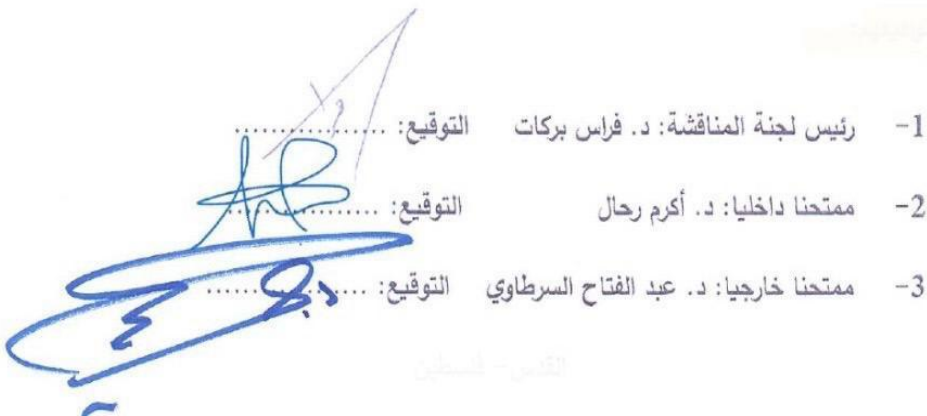 1- رئيس لجنة المناقشة: د. فراس بركات التوقيع: ................
2- ممتحنا داخليا: د. أكرم رحال التوقيع: ................
3- ممتحنا خارجيا: د. عبد الفتاح السرطاوي التوقيع: ................
القدس- فلسطين